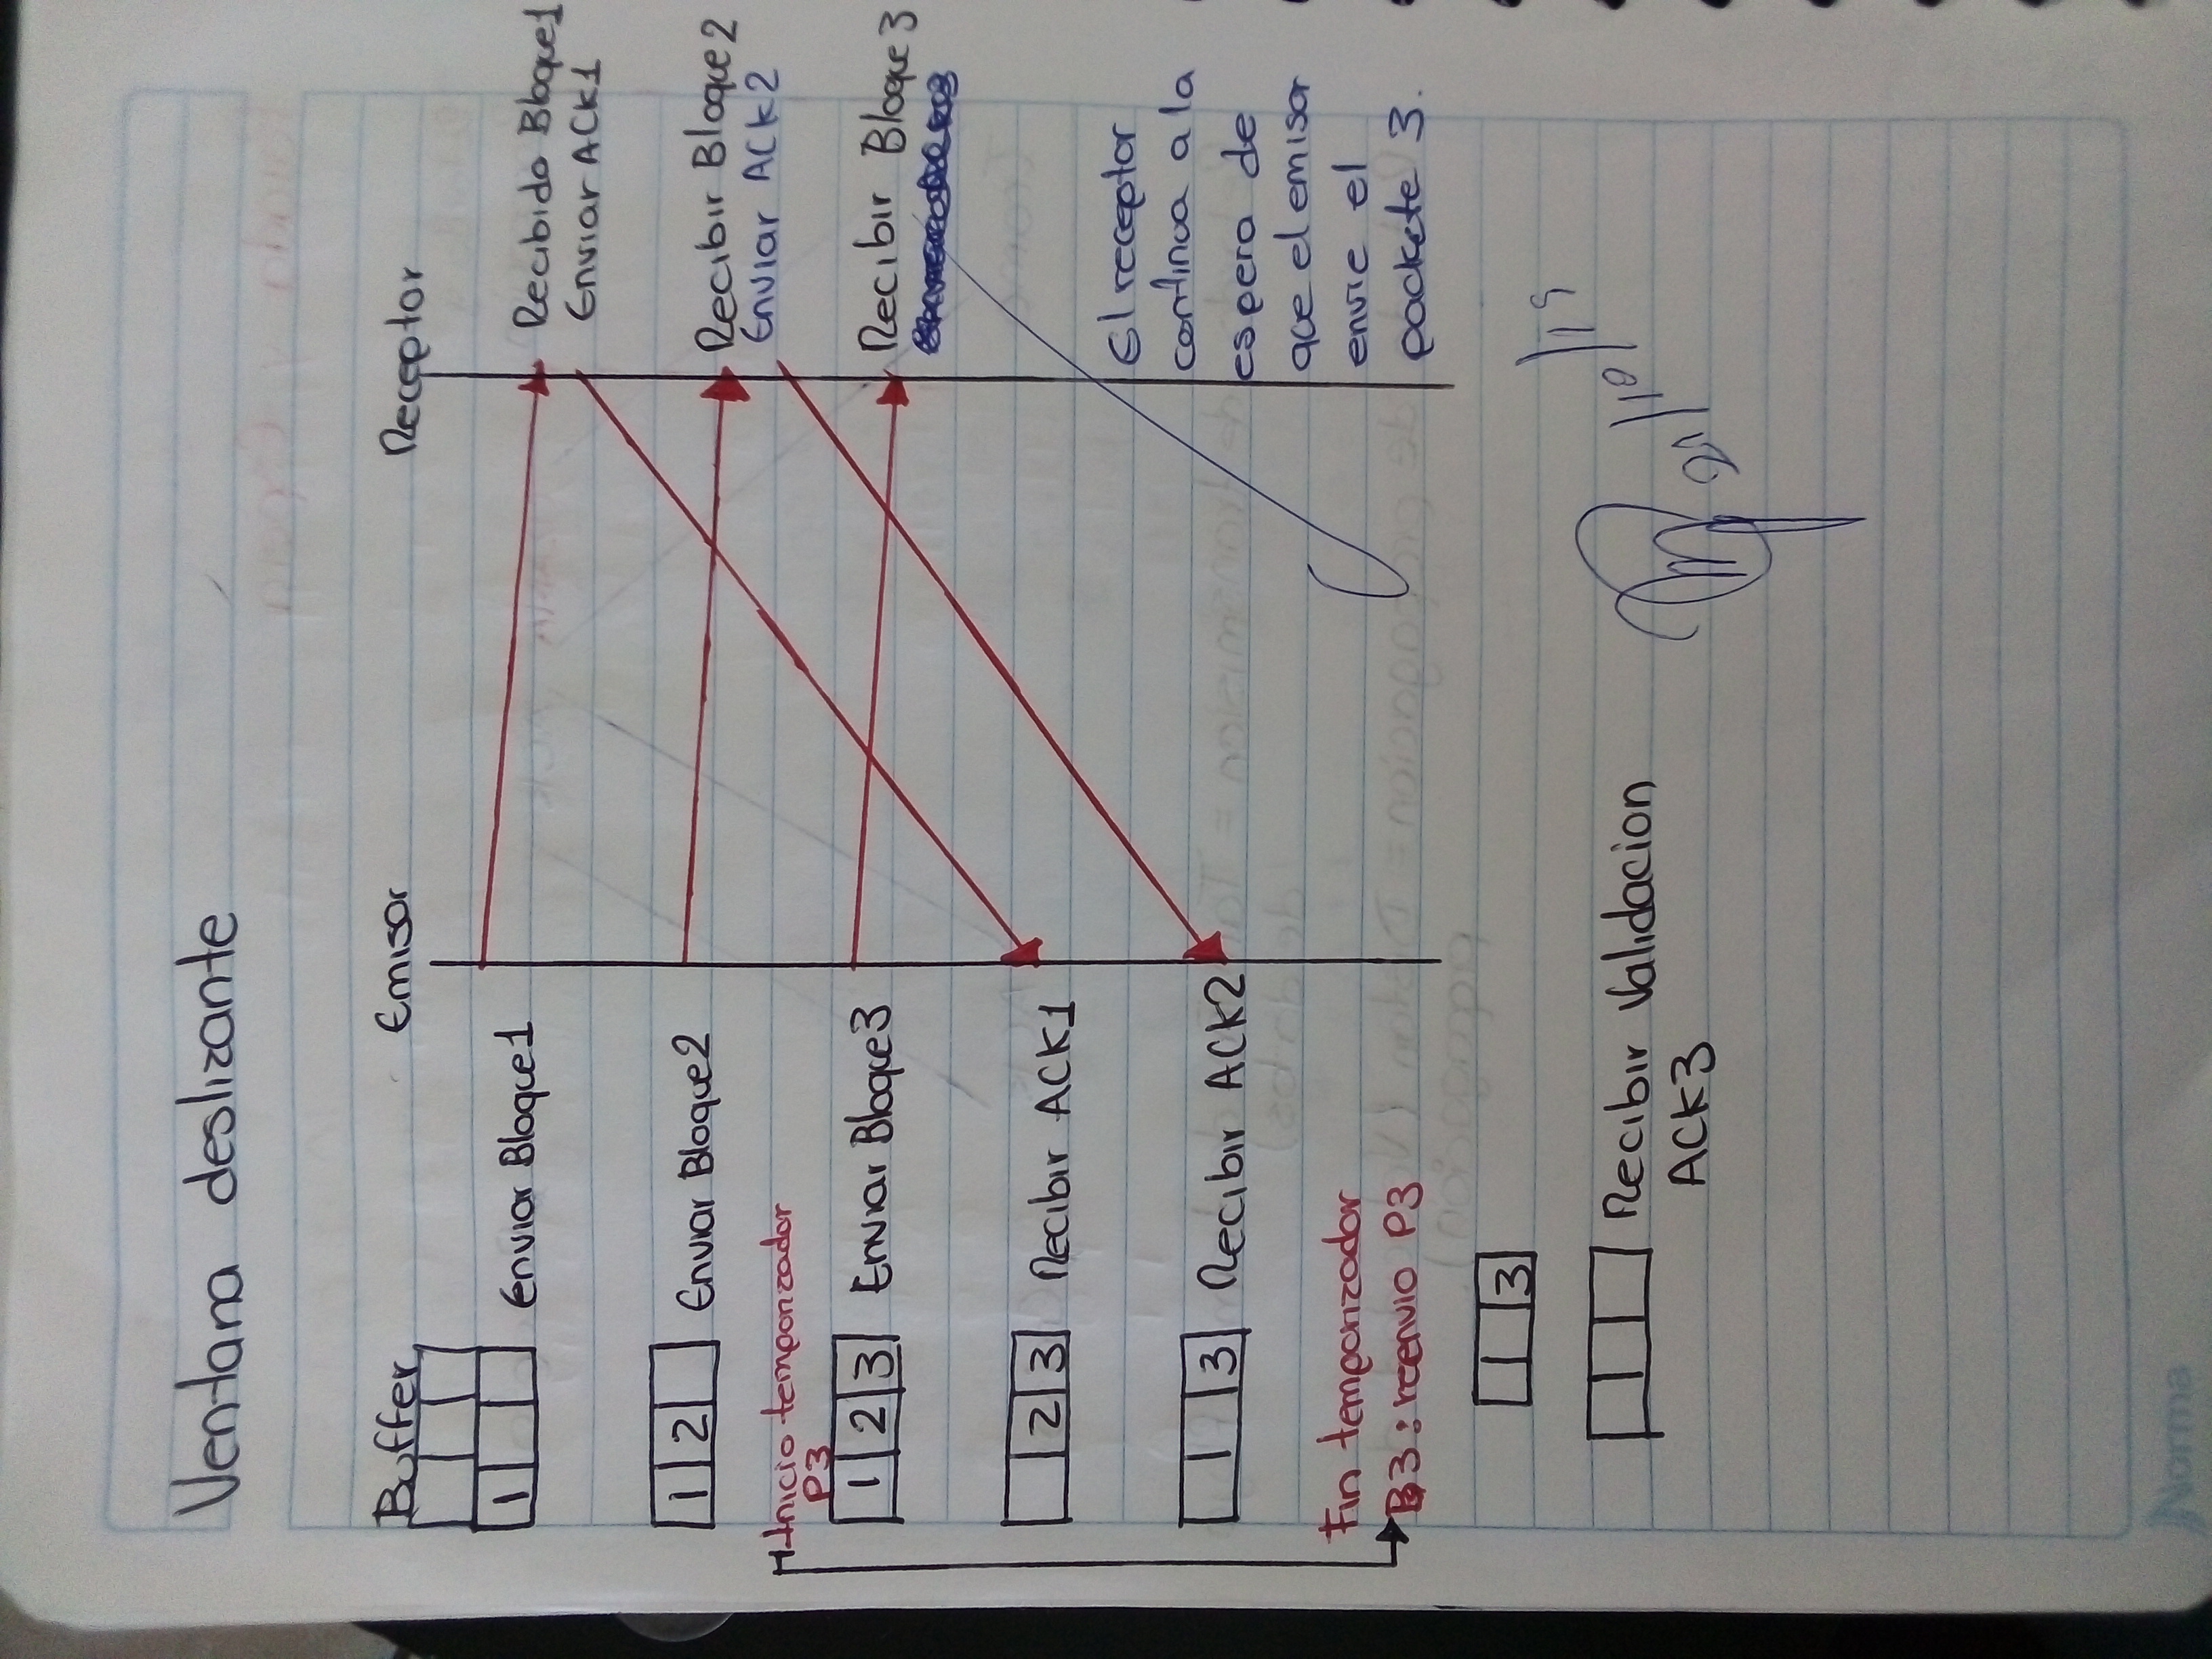 Ventana deslizante
Buffer Emisor Receptor
1 Enviar Bloque1 Recibido Bloque1
Enviar ACK1
1 2 Enviar Bloque2 Recibir Bloque2
Enviar ACK2
Inicio temporizador
P3
1 2 3 Enviar Bloque3 Recibir Bloque3
2 3 Recibir ACK1
El receptor
continua a la
3 Recibir ACK2
espera de
que el emisor
Fin temporizador
envie el
B3: reenvio P3
packete 3.
3
Recibir Validacion
ACK3
21/10/19
Norma